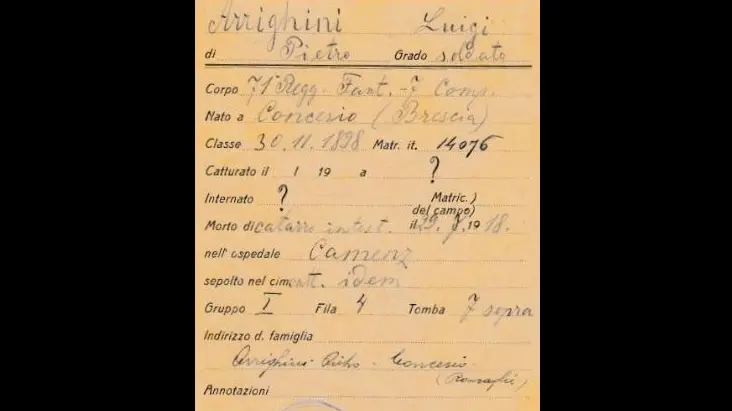 Arrighini Luigi
di Pietro Grado soldato
Corpo 71° Regg. Fant. - 7 Comp.
Nato a Concesio (Brescia)
Classe 30.11.1898 Matr. it. 14076
Catturato il 1 19 a ?
Internato ? Matric. )
del campo)
Morto di catarro intest. il 29. 7. 1918.
nell'ospedale Camenz
sepolto nel cim. catt. idem
Gruppo I Fila 4 Tomba 7 sopra
Indirizzo d. famiglia
Arrighini Pietro - Concesio
Annotazioni